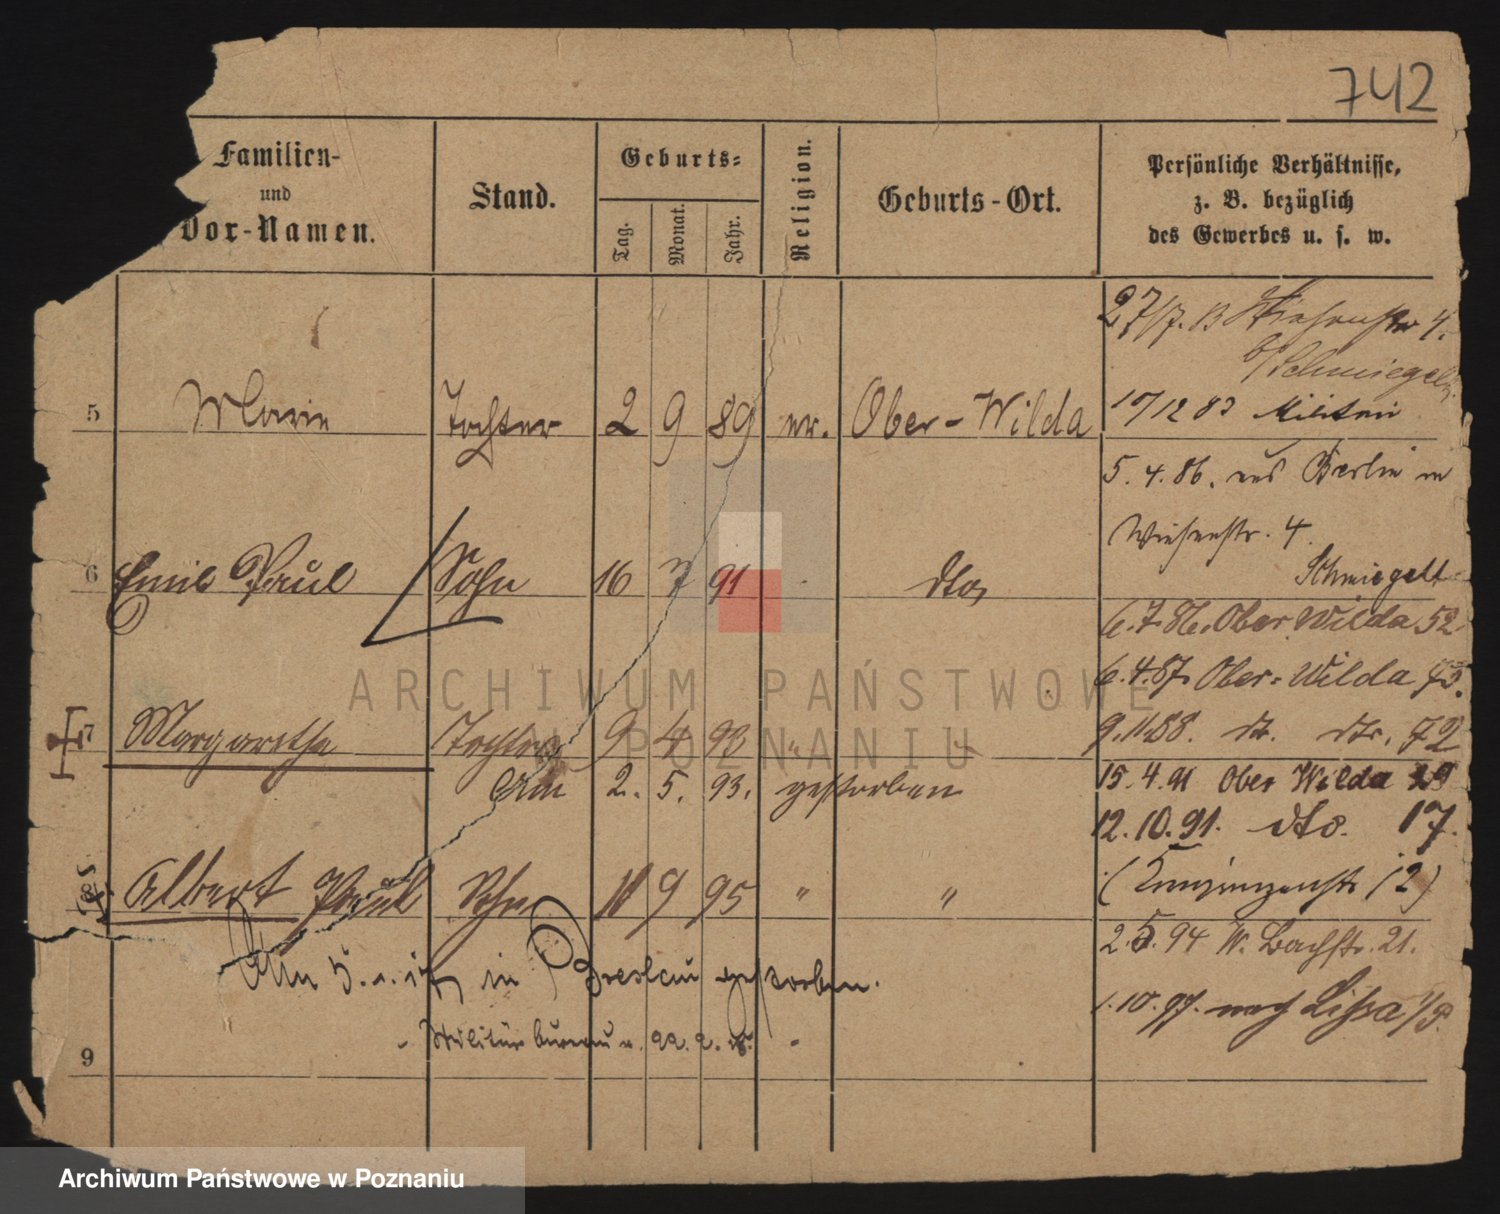 742
Familien-
und
Vor-Namen.
Stand.
Geburts-
Tag.
Monat.
Jahr.
Religion.
Geburts-Ort.
Persönliche Verhältnisse,
z. B. bezüglich
des Gewerbes u. s. w.
27/7. 83 Wiesenstr 4.
b/Schmiegelt
5 Marie Tochter 2 9 89 ev. Ober-Wilda
10/12 83 Militair
5. 4. 86. aus Berlin
Wiesenstr. 4.
Schmiegelt
6 Emil Paul Sohn 16 7 91 dto
6. 7. 86. Ober Wilda 52
6. 4. 87. Ober-Wilda
7 Margarethe Tochter 9 4 93 "
9. 11. 88. dt. dto. 72
Am 2. 5. 93. gestorben
15. 4. 91 Ober Wilda 29
12. 10. 91. dto. 17.
8 Albert Paul Sohn 9 95 " "
12)
2. 5. 94 W. Bachstr. 21.
Am in Breslau gestorben.
1. 10. 97. nach Lissa i/P.
Militärbureau 22. 2.
9
ARCHIWUM PAŃSTWOWE
W POZNANIU
Archiwum Państwowe w Poznaniu